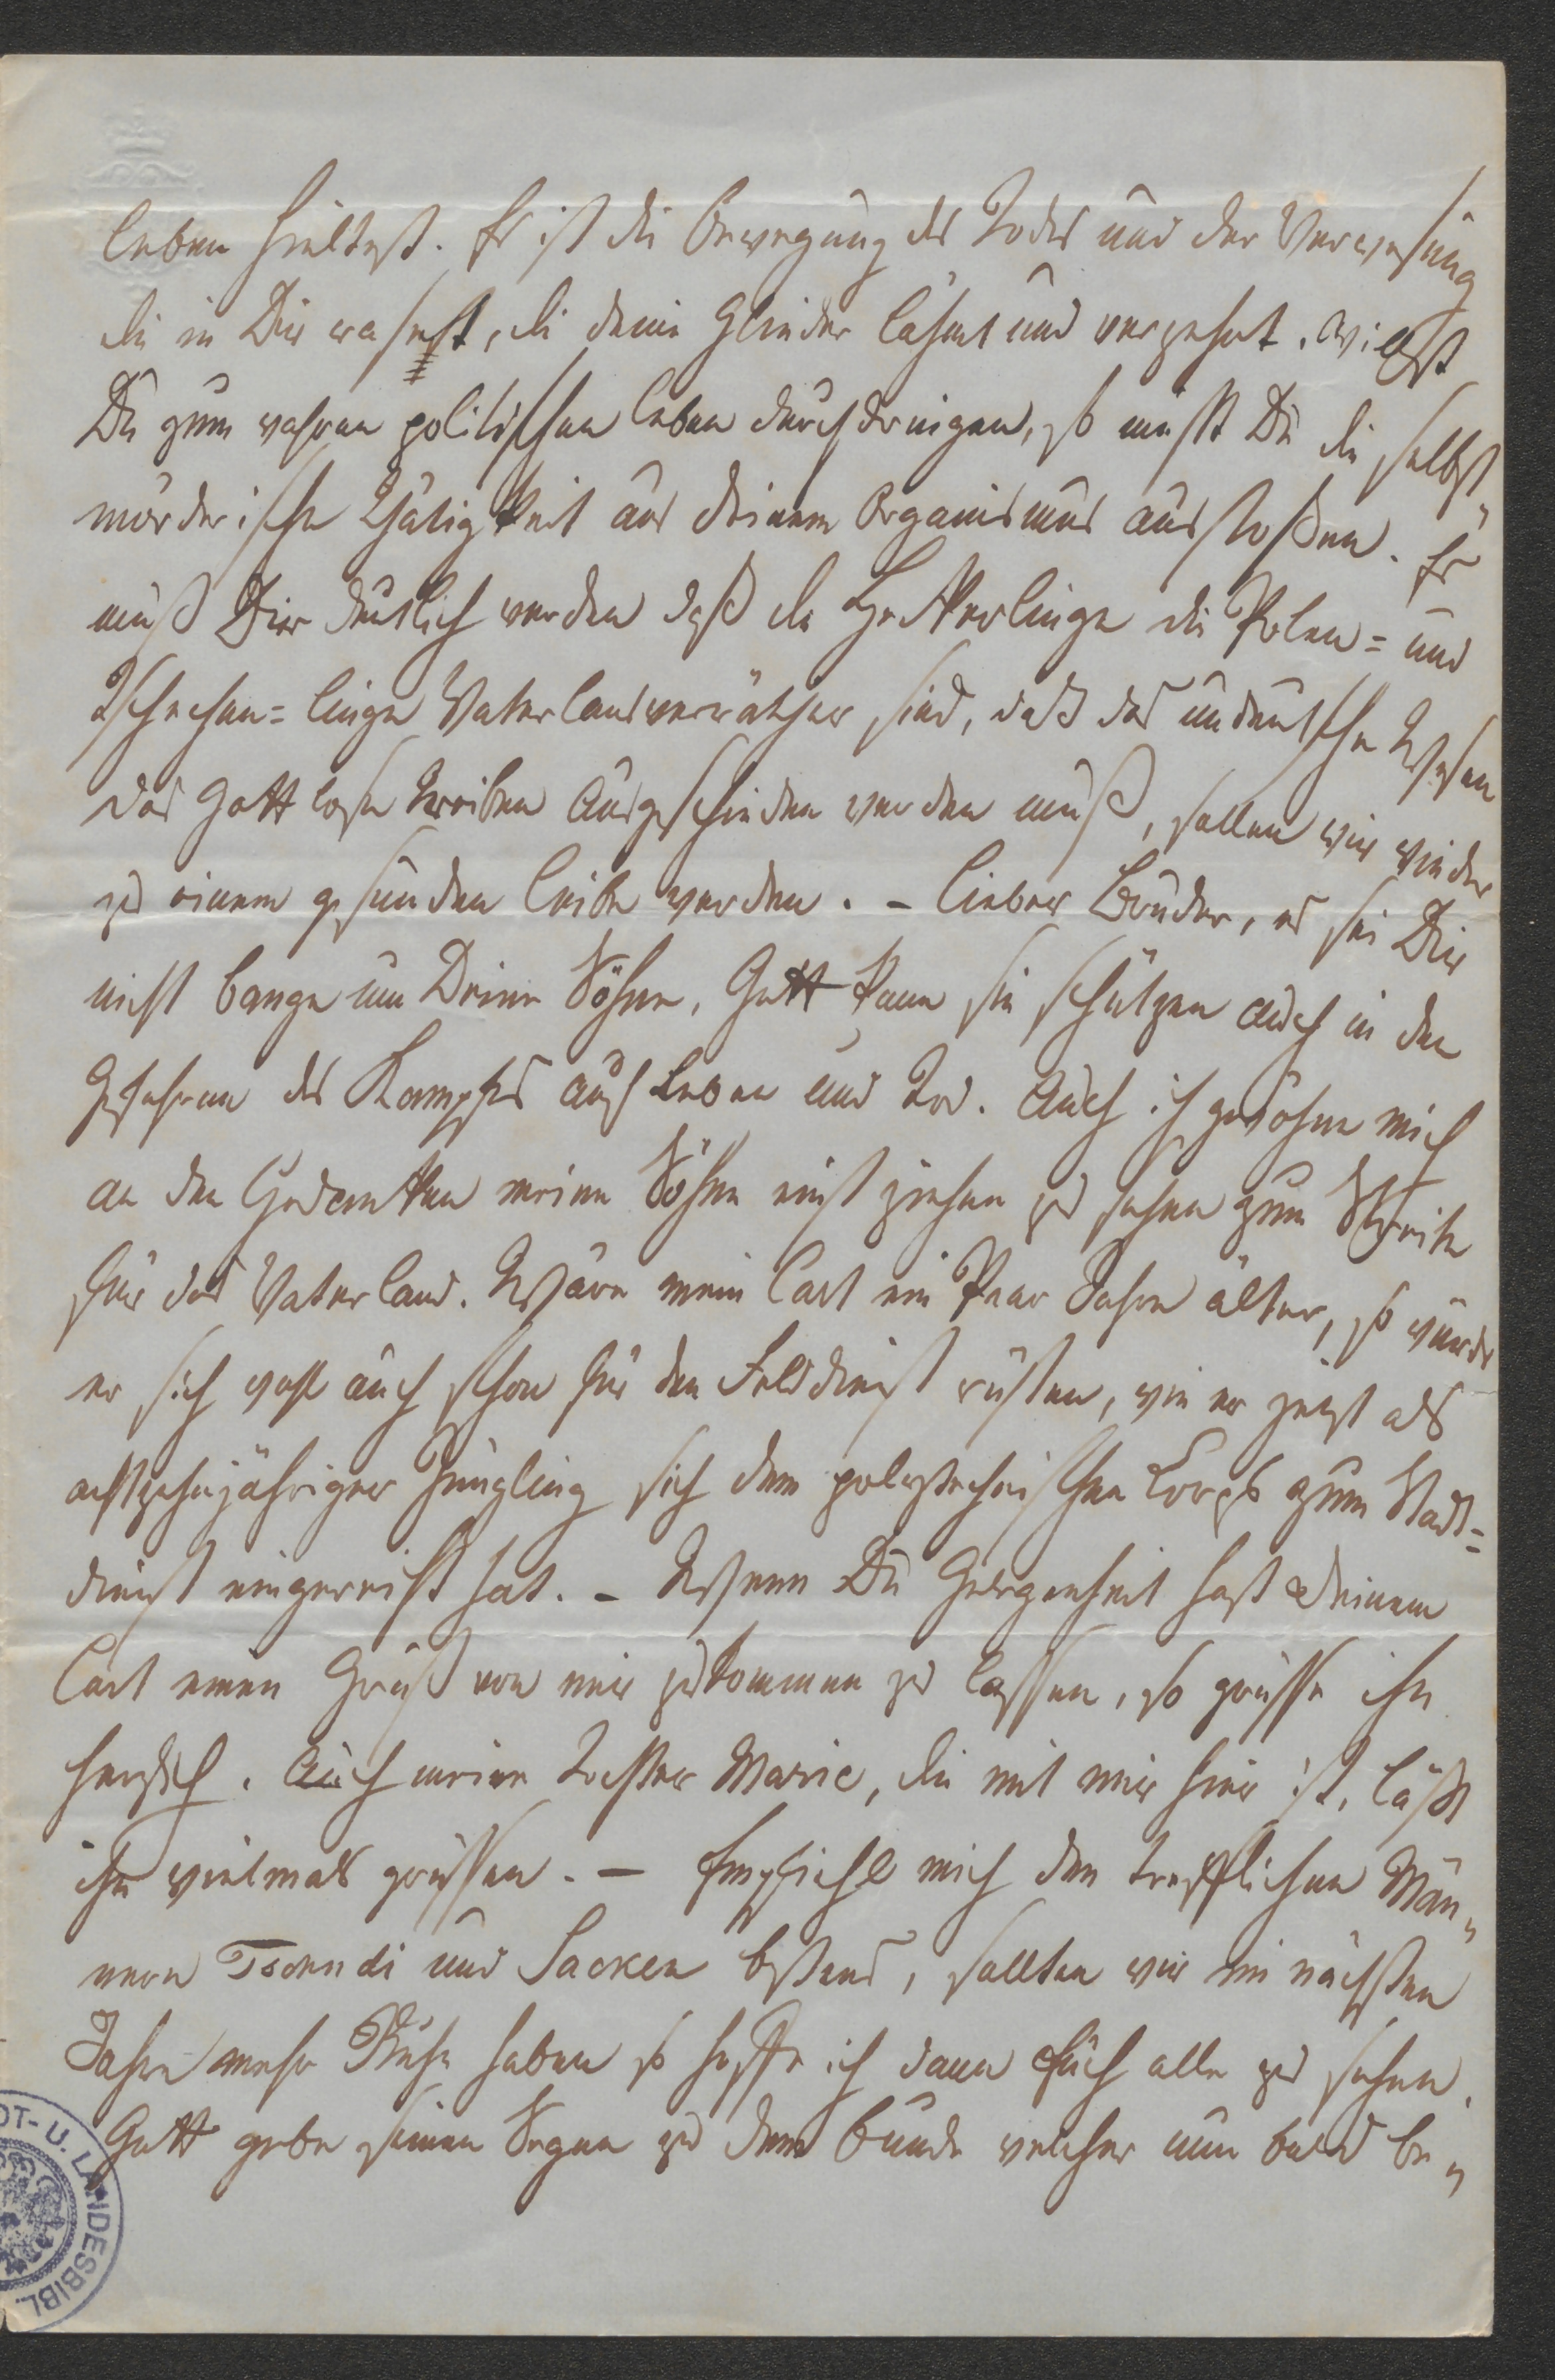 Leben hieltest. Es ist die Bewegung des Todes und der Verwesung
die in Dir raset, die deine Glieder lähmt und verzehrt. Willst
Du zum wahren politischen Leben durchdringen, so mußt Du die selbst-
mörderische Thätigkeit aus deinem Organismus ausstoßen. Es
muß Dir deutlich werden daß die Heckerlinge die Polen= und
Tschechen=linge Vaterlandsverräther sind, daß das undeutsche Wesen
das Gottlose Treiben ausgeschieden werden muß, sollen wir wieder
zu einem gesunden Leibe werden. – Lieber Bruder, es sei Dir
nicht bange um Deine Söhne, Gott kann sie schützen auch in den
Gefahren des Kampfes auf Leben und Tod. Auch ich gewöhne mich
an den Gedanken meine Söhne einst ziehen zu sehen zum Streite
für das Vaterland. Wäre mein Carl ein Paar Jahre älter, so würde
er sich wohl auch schon für den Felddienst rüsten, wie er jetzt als
achtzehnjähriger Jüngling sich dem polytechnischen Corps zum Stadt=
dienst eingereiht hat. – Wenn Du Gelegenheit hast Deinem
Carl einen Gruß von mir zukommen zu lassen, so grüße ihn
herzlich. Auch meine Tochter Marie, die mit mir hier ist, läßt
ihn vielmals grüßen. – Empfiehl mich den trefflichen Män-
nern und Sacken bestens, sollten wir im nächsten
Jahre mehr Ruhe haben so hoffe ich dann Euch alle zu sehen.
Gott gebe seinen Segen zu dem Bunde welcher nun bald be-
DT- U. LANDESBIBL.